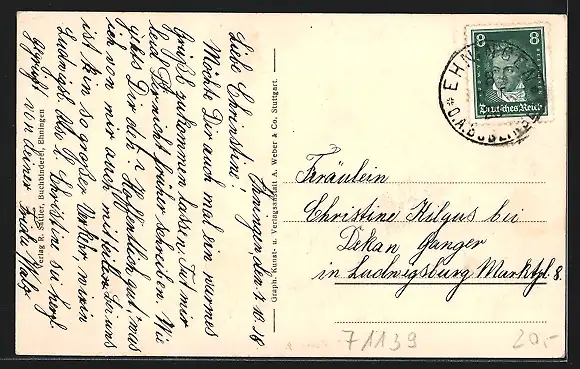 Ehningen, den 7. 10. 28
Liebe Christine!
Möchte Dir auch mal ein warmes
Grüßle zukommen lassen. Tut mir
leid Dir nicht früher schreiben. Wie
gehts Dir als? Hoffentlich gut, was
ich von mir auch mitteilen. Bei uns
ist kein so großer Verkehr, wie in
Ludwigsb. das l. Christine sei herzl.
gegrüßt von deiner
Verlag R. Sattler, Buchbinderei, Ehningen
Graph. Kunst- u. Verlagsanstalt A. Weber & Co. Stuttgart.
8 8
Deutsches Reich
EHNINGEN
O.A. BÖBLINGEN
Fräulein
Christine Kilgus bei
Dekan Ganger
in Ludwigsburg Marktpl. 8.
71139
20,-